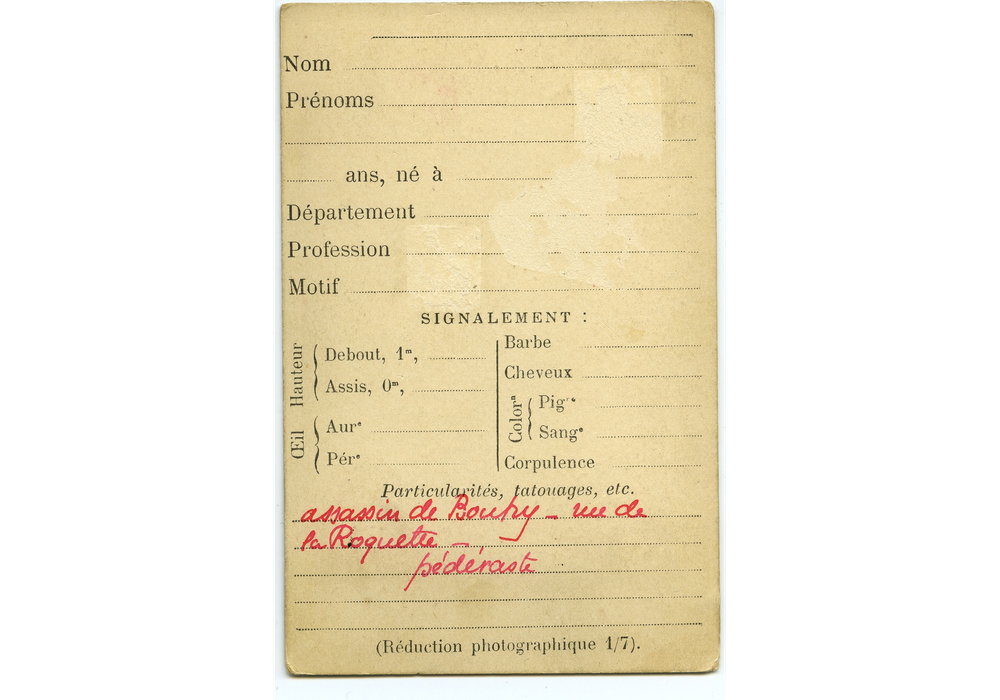 Nom
Prénoms
ans, né à
Département
Profession
Motif
SIGNALEMENT :
Hauteur
Debout, 1ᵐ,
Assis, 0ᵐ,
Œil
Aurᵉ
Pérᵉ
Barbe
Cheveux
Colorⁿ
Pigᵗᵉ
Sangᵉ
Corpulence
Particularités, tatouages, etc.
assassin de Bouhy – rue de
la Roquette –
pédéraste
(Réduction photographique 1/7).